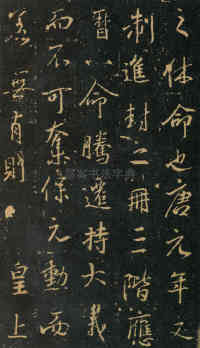 之休命也唐元年又
制進封二冊三階應
曆八命騰遷持大義
而不可奪保元勳而
若無有則 皇上